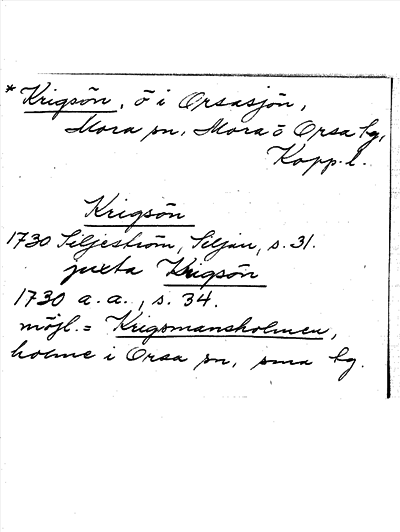 * Krigsön, ö i Orsasjön,
Mora sn, Mora o Orsa tg,
Kopp. l.
Krigsön
1730 Siljeström, Siljan, s. 31.
juxta Krigsön
1730 a. a., s. 34.
möjl. = Krigsmansholmen,
holme i Orsa sn, sma tg.